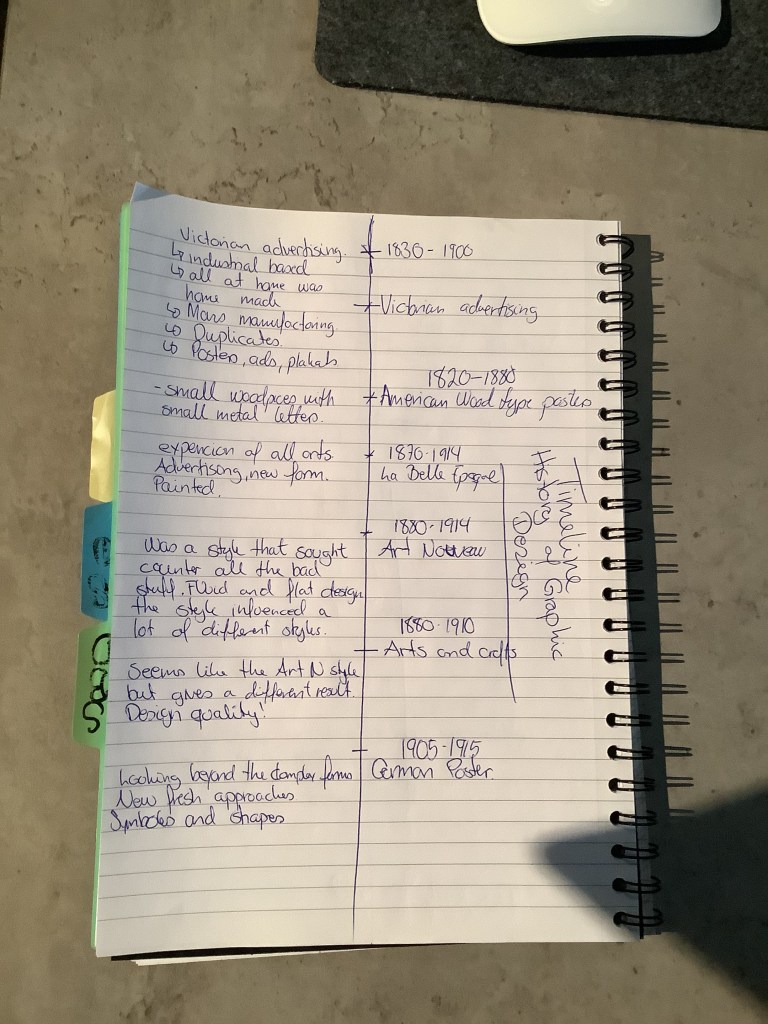 Timeline
History of Graphic
Design
Victorian advertising.
↳ industrial based
↳ all at home was
home made
↳ Mass manufactoring.
↳ Duplicates.
↳ Posters, ads, plakats
1830 - 1900
Victorian advertising
- small woodpces with
small metal letters.
1820-1880
American Wood type posters
expencion of all arts.
Advertisong, new form.
Painted.
1870-1914
La Belle Epoque
Was a style that sought
counter all the bad
stuff. Fluid and flat design
the style influenced a
lot of different styles.
1880-1914
Art Nouveau
Seems like the Art N style
but gives a different result.
Design quality!
1880-1910
Arts and crafts
Looking beyond the forms
New fresh approaches
Symboles and shapes
1905-1915
German Poster.